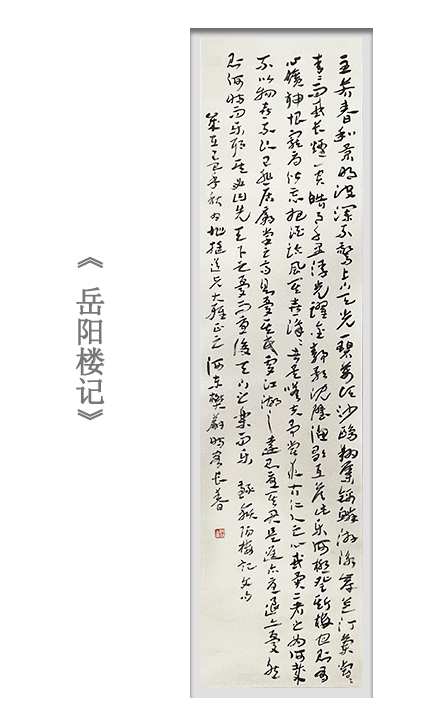 《岳阳楼记》
至若春和景明波澜不惊上下天光一碧万顷沙鸥翔集锦鳞游泳岸芷汀兰郁郁
青青而或长烟一空皓月千里浮光躍金静影沉璧渔歌互答此乐何極登斯楼也则有
心旷神怡宠辱偕忘把酒临风其喜洋洋者矣嗟夫予尝求古仁人之心或异二者之为何哉
不以物喜不以己悲居庙堂之高则忧其民处江湖之远则忧其君是进亦忧退亦忧然
则何时而乐耶其必曰先天下之忧而忧後天下之樂而乐 録嶽陽楼记文句
歲在乙巳年秋 大雅正之 河东樊